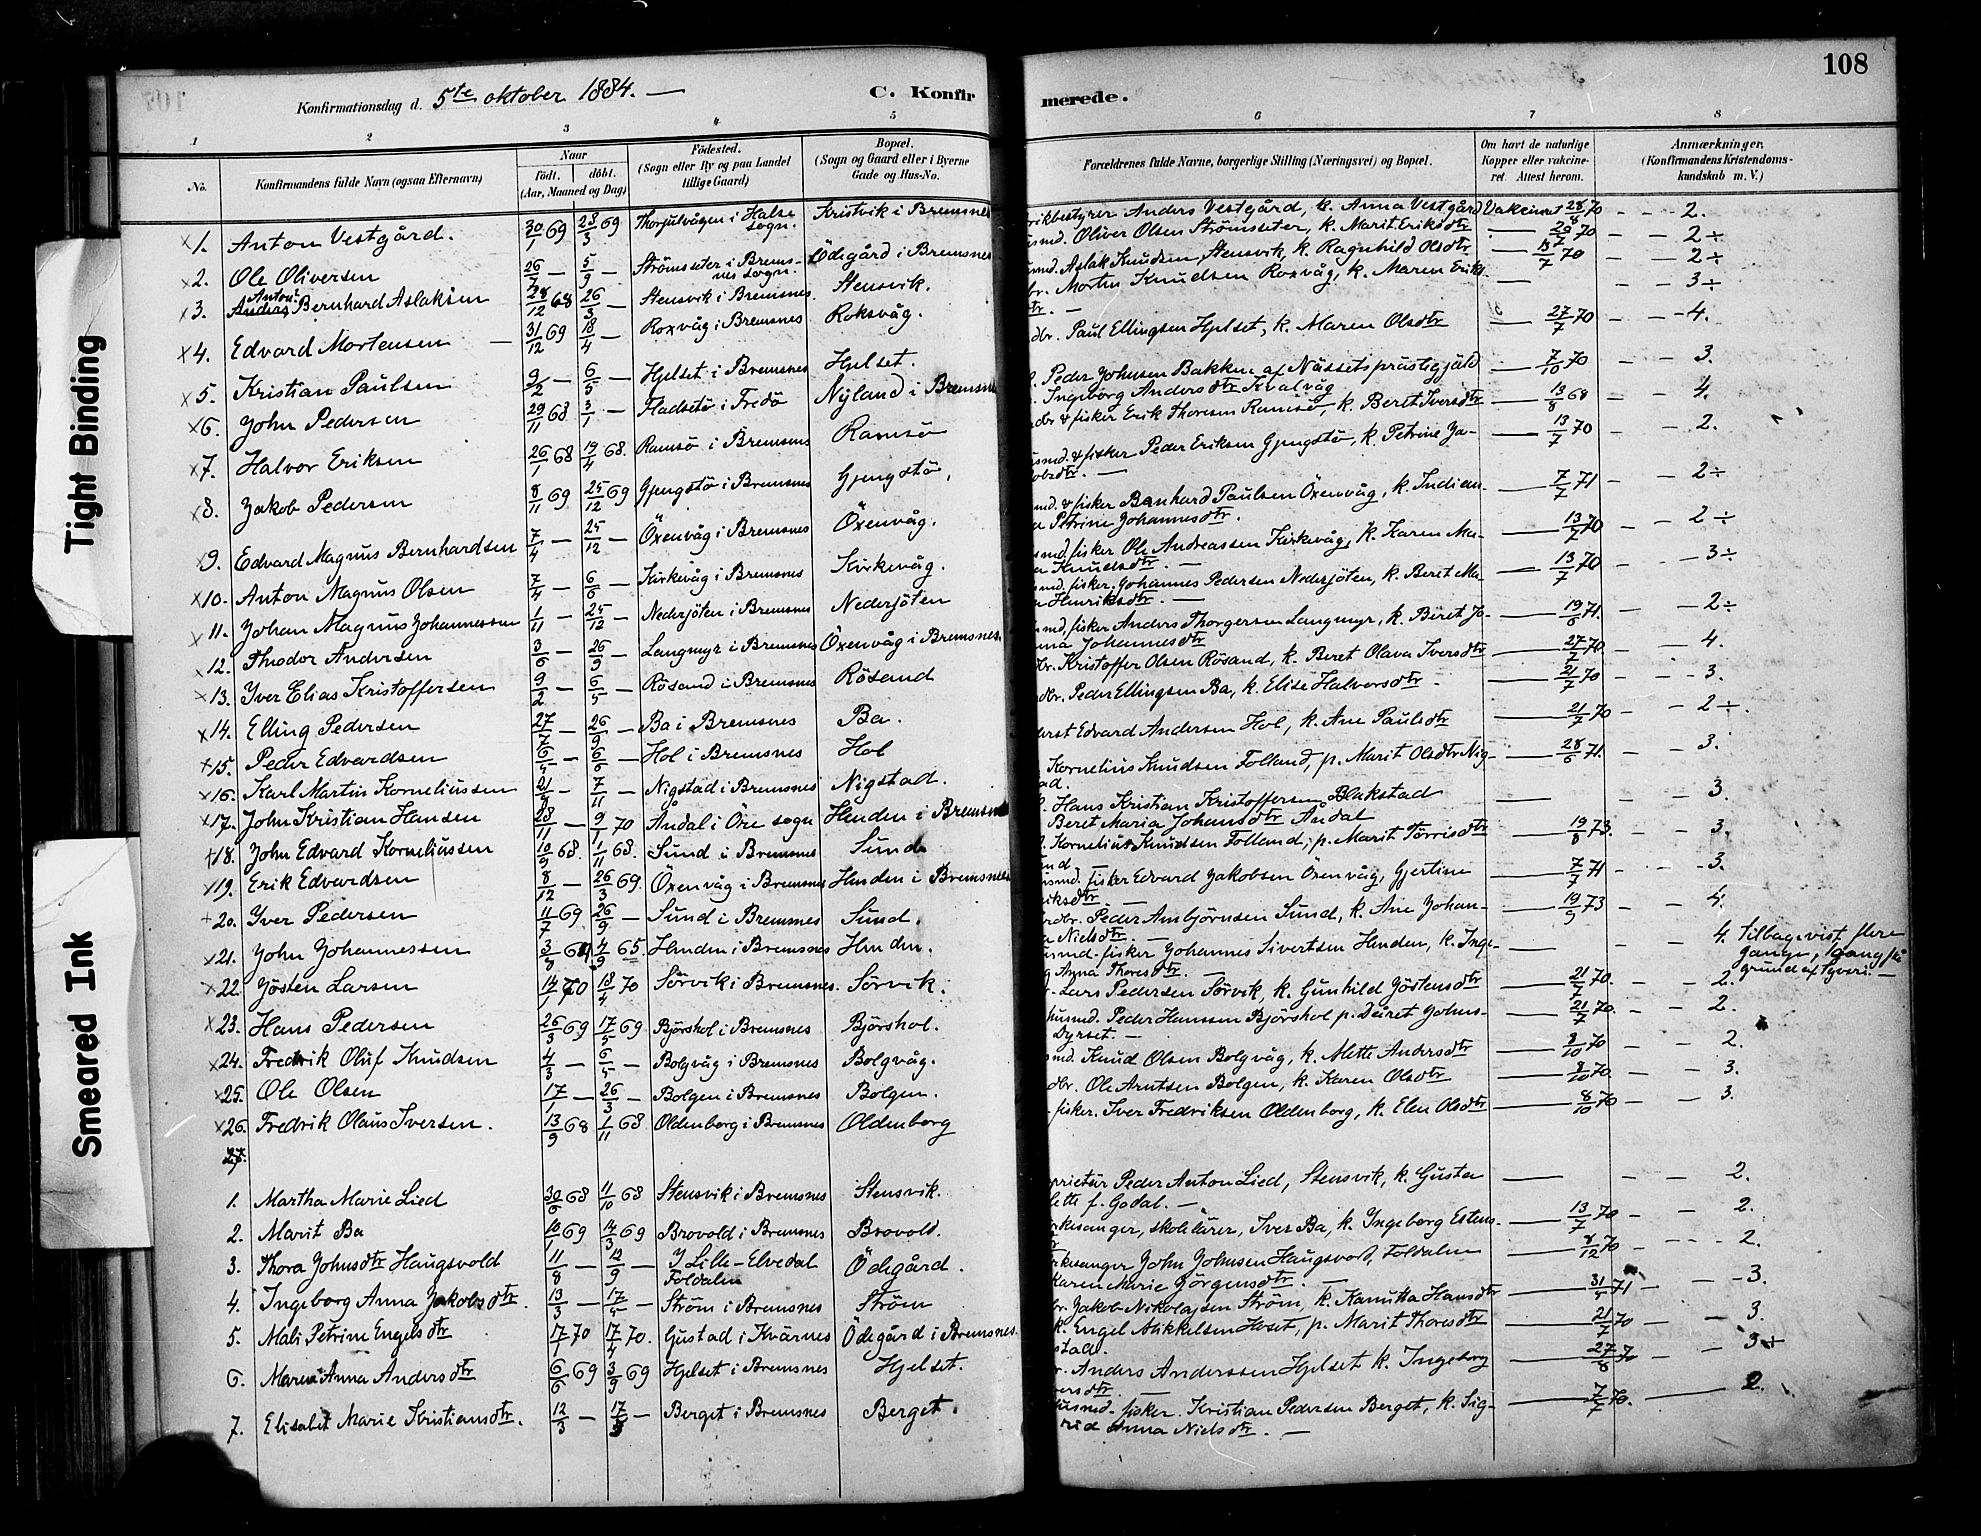 Tight Binding
Smeared Ink
108
Konfirmationsdag d. 5te oktober 1884. — C. Konfirmerede.
1 2 3 4 5 6 7 8
No.
Konfirmandens fulde Navn (ogsaa Efternavn)
Naar
Födt. döbt.
(Aar, Maaned og Dag)
Födested.
(Sogn eller By og paa Landet tillige Gaard)
Bopæl.
(Sogn og Gaard eller i Byerne Gade og Hus-No.
Forældrenes fulde Navne, borgerlige Stilling (Næringsvei) og Bopæl.
Om havt de naturlige Kopper eller vakcineret. Attest herom.
Anmærkninger.
(Konfirmandens Kristendomskundskab m. V.)
× 1. Anton Vestgård. 30/1 69 28/3 69 Thorjulvågen i Halse sogn. Kristvik i Bremsnes Anders Vestgård, k. Anna Vestgård Vakcinert 28/8 70 — 2.
× 2. Ole Oliversen 26/7 — 5/9 — Strömsseter i Bremsnes sogn. Ödegård i Bremsnes Oliver Olsen Strömseter, k. Marit Eriksdtr 70 — 2 ÷
× 3. Anton Bernhard Aslaksen 28/12 68 26/3 — Stensvik i Bremsnes. Stensvik. Aslak Knudsen Stensvik, k. Ragnhild Olsdtr 13/7 70 — 2 ÷
× 4. Edvard Mortensen — 31/12 69 18/4 — Roxvåg i Bremsnes Roksvåg. Morten Knudsen Roxvåg, k. Maren — 3 ÷
× 5. Kristian Paulsen 9/2 — 6/5 — Hjelset i Bremsnes Hjelset. Paul Ellingsen Hjelset, k. Maren Olsdtr 27/7 70 — 4.
× 6. John Pedersen 29/11 68 3/1 — Fladsetö i Fredö Nyland i Bremsnes Peder Johnsen Bakken af Nässets prästegjäld Ingeborg Andersdtr Kvalvåg 7/10 70 — 3.
× 7. Halvor Eriksen 26/1 68 19/4 68. Ramsö i Bremsnes Ramsö & fisker Erik Thoresen Ramsö, k. Beret Iversdtr 13/8 68 — 4.
× 8. Jakob Pedersen 8/11 69 25/12 69 Gjengstö i Bremsnes Gjengstö, & fisker Peder Eriksen Gjengstö, k. Petrine Ja- 13/7 70 — 2.
× 9. Edvard Magnus Bernhardsen 7/4 — 25/12 — Öxenvåg i Bremsnes Öxenvåg. & fisker Bernhard Paulsen Öxenvåg, k. Indian- Petrine Johannesdtr. 7/7 71 — 2 ÷
× 10. Anton Magnus Olsen 7/4 — 6/6 — Kirkevåg i Bremsnes Kirkevåg. fisker Ole Andreassen Kirkevåg, k. Karen Ma- Knudsdtr. — 13/7 70 — 2 ÷
× 11. Johan Magnus Johannessen 1/11 — 25/12 — Nederjöten i Bremsnes Nederjöten fisker Johannes Pedersen Nederjöten, k. Beret Ma- Henriksdtr. — 13/7 70 — 3 ÷
× 12. Theodor Andersen 3/6 — 26/9 — Langmyr i Bremsnes Öxenvåg i Bremsnes. fisker Anders Thorgersen Langmyr, k. Beret Jo- Johannesdtr 19/6 71. — 2 ÷
× 13. Yver Elias Kristoffersen 9/2 — 6/5 — Rösand i Bremsnes Rösand Kristoffer Olsen Rösand, k. Beret Olava Iversdtr 27/7 70 — 4.
× 14. Elling Pedersen 27/7 — 26/9 — Ba i Bremsnes Ba. Peder Ellingsen Ba, k. Elise Halvorsdtr. 21/7 70 — 3.
× 15. Peder Edvardsen 6/4 — 6/6 — Hol i Bremsnes Hol Edvard Andersen Hol, k. Ane Paulsdtr 21/7 70 — 2 ÷.
× 16. Karl Martin Korneliussen 21/9 — 7/11 — Nigstad i Bremsnes Nigstad. Kornelius Knudsen Folland, p. Marit Olsdtr Nig- 28/6 71. — 3.
× 17. John Kristian Hansen 28/11 — 9/1 70 Åndal i Öre sogn Henden i Bremsnes Hans Kristian Kristoffersen Blakstad Beret Maria Johansdtr Åndal — 3.
× 18. John Edvard Korneliussen 10/9 68. 1/11 68. Sund i Bremsnes Sund Kornelius Knudsen Folland, p. Marit Törrisdtr 19/8 73. — 3.
× 19. Erik Edvardsen 8/12 — 26/3 69. Öxenvåg i Bremsnes Henden i Bremsnes fisker Edvard Jakobsen Öxenvåg, Gjertine 7/7 71 — 3.
+ 20. Yver Pedersen 11/7 69 26/9 — Sund i Bremsnes Sund. Peder Ambjörnsen Sund, k. Ane Johan- Nielsdtr — 19/9 73 — 4.
× 21. John Johannessen 3/8 64 4/9 65. Henden i Bremsnes Henden. fisker Johannes Sivertsen Henden, k. Inge- Anna Thoresdtr. — 4. tilbagevist flere gange, på grund af tyveri. —
× 22. Jösten Larsen 14/1 70 18/4 70 Sörvik i Bremsnes. Sörvik. Lars Pedersen Sörvik, k. Gunhild Jöstensdtr 21/7 70. — 2.
× 23. Hans Pedersen 26/3 69 17/5 69 Björshol i Bremsnes Björshol. Peder Hanssen Björshol p. Dyrset. — 21/7 70. — 2.
× 24. Fredrik Oluf Knudsen 4/3 — 6/5 — Bolgvåg i Bremsnes Bolgvåg. Knud Olsen Bolgvåg, k. Mette Andersdtr 8/10 70 — 2.
× 25. Ole Olsen 17/1 — 26/3 — Bolgen i Bremsnes Bolgen. Ole Arntsen Bolgen, k. Karen Olsdtr 8/10 70 — 3.
× 26. Fredrik Olaus Iversen. 13/9 68 1/11 68 Oldenborg i Bremsnes Oldenborg fisker. Iver Fredriksen Oldenborg, k. Elen Olsdtr 8/10 70 — 3.
27.
1. Martha Marie Lied 30/6 68 11/10 68 Stensvik i Bremsnes Stensvik. Peder Anton Lied, Stensvik, k. Gusta f. Godal. — 2.
2. Marit Ba 10/1 69 14/3 69 Brovold i Bremsnes Brovold. skolelärer, Iver Ba, k. Ingeborg Estens- 13/7 70 — 2.
3. Thora Johnsdtr Haugsvold 11/8 — 12/9 — I Lille-Elvedal Foldalen Ödegård. John Johnsen Haugsvold, Foldalen Karen Marie Jörgensdtr. — 8/12 70 — 2.
4. Ingeborg Anna Jakobsdtr. 13/3 — 17/5 — Ström i Bremsnes Ström Jakob Nikolajsen Ström, k. Kanutta Hansdtr 31/5 71 — 3.
5. Mali Petrine Engelsdtr 17/1 70 17/4 70. Gustad i Kvärnes Ödegård i Bremsnes. Engel Mikkelsen Hoset, p. Marit Thoresdtr 21/7 70 — 3.
6. Maren Anna Andersdtr 6/6 69 3/9 69 Hjelset i Bremsnes Hjelset. Anders Anderssen Hjelset k. Ingeborg 27/8 70 — 3 ÷
7. Elisabet Marie Kristiansdtr. 12/3 — 17/5 — Berget i Bremsnes Berget. fisker. Kristian Pedersen Berget, k. Sig- rid Anna Nielsdtr. — 7/7 70. — 2.